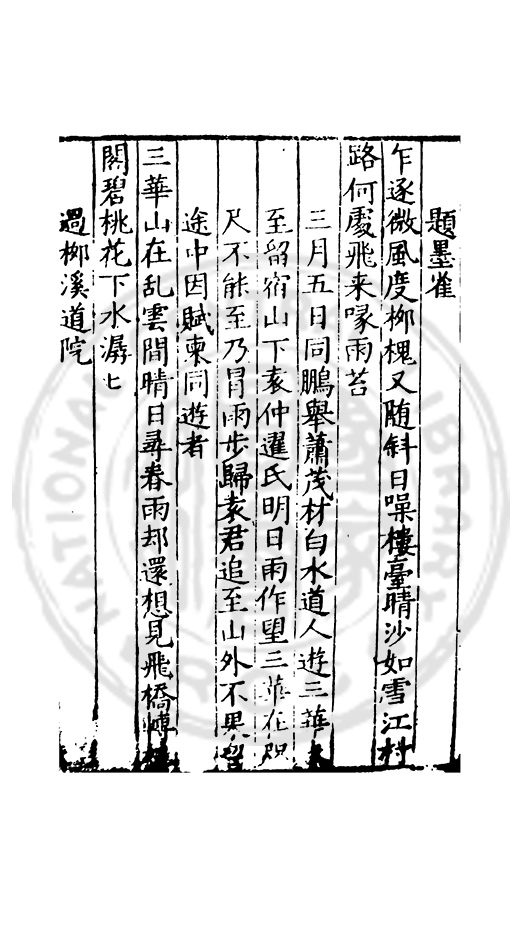 題墨雀
乍逐微風度栁槐又随斜日噪樓臺晴沙如雪江村
路何處飛来啄雨苔
三月五日同鵬舉蕭茂材白水道人遊三華
至留宿山下袁仲遲氏明日雨作望三華在咫
尺不能至乃冒雨步歸袁君追至山外不果留
途中因賦柬同遊者
三華山在乱雲間晴日尋春雨却還想見飛橋
閣碧桃花下水潺匕
過栁溪道院